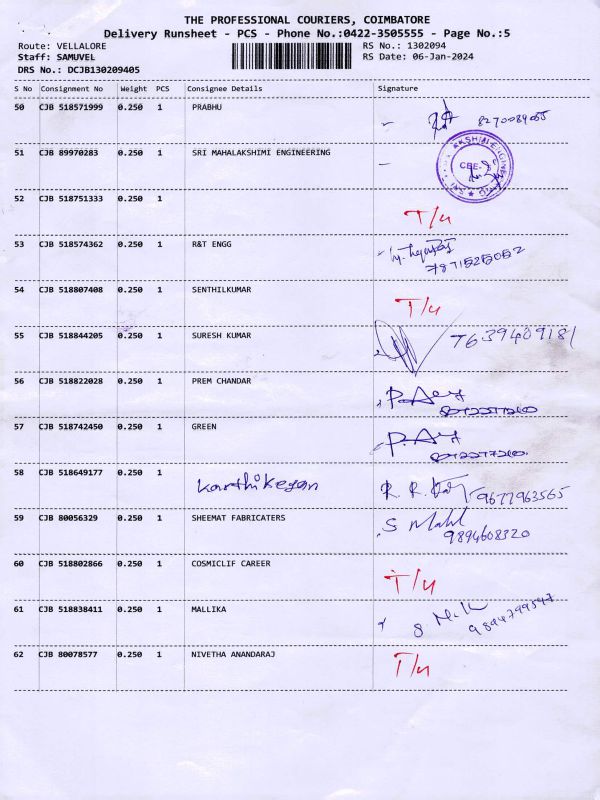 THE PROFESSIONAL COURIERS, COIMBATORE
Delivery Runsheet - PCS - Phone No.:0422-3505555 - Page No.:5
Route: VELLALORE
RS No.: 1302094
Staff: SAMUVEL
RS Date: 06-Jan-2024
DRS No.: DCJB130209405
S No Consignment No Weight PCS Consignee Details Signature
50 CJB 518571999 0.250 1 PRABHU
51 CJB 89970283 0.250 1 SRI MAHALAKSHMI ENGINEERING
52 CJB 518751333 0.250 1 T/4
53 CJB 518574362 0.250 1 R&T ENGG
54 CJB 518807408 0.250 1 SENTHILKUMAR T/4
55 CJB 518844205 0.250 1 SURESH KUMAR 7639409181
56 CJB 518822028 0.250 1 PREM CHANDAR
57 CJB 518742450 0.250 1 GREEN
58 CJB 518649177 0.250 1 Karthikeyan 9677963565
59 CJB 80056329 0.250 1 SHEEMAT FABRICATERS S
9894608320
60 CJB 518802866 0.250 1 COSMICLIF CAREER T/4
61 CJB 518838411 0.250 1 MALLIKA
62 CJB 80078577 0.250 1 NIVETHA ANANDARAJ T/4